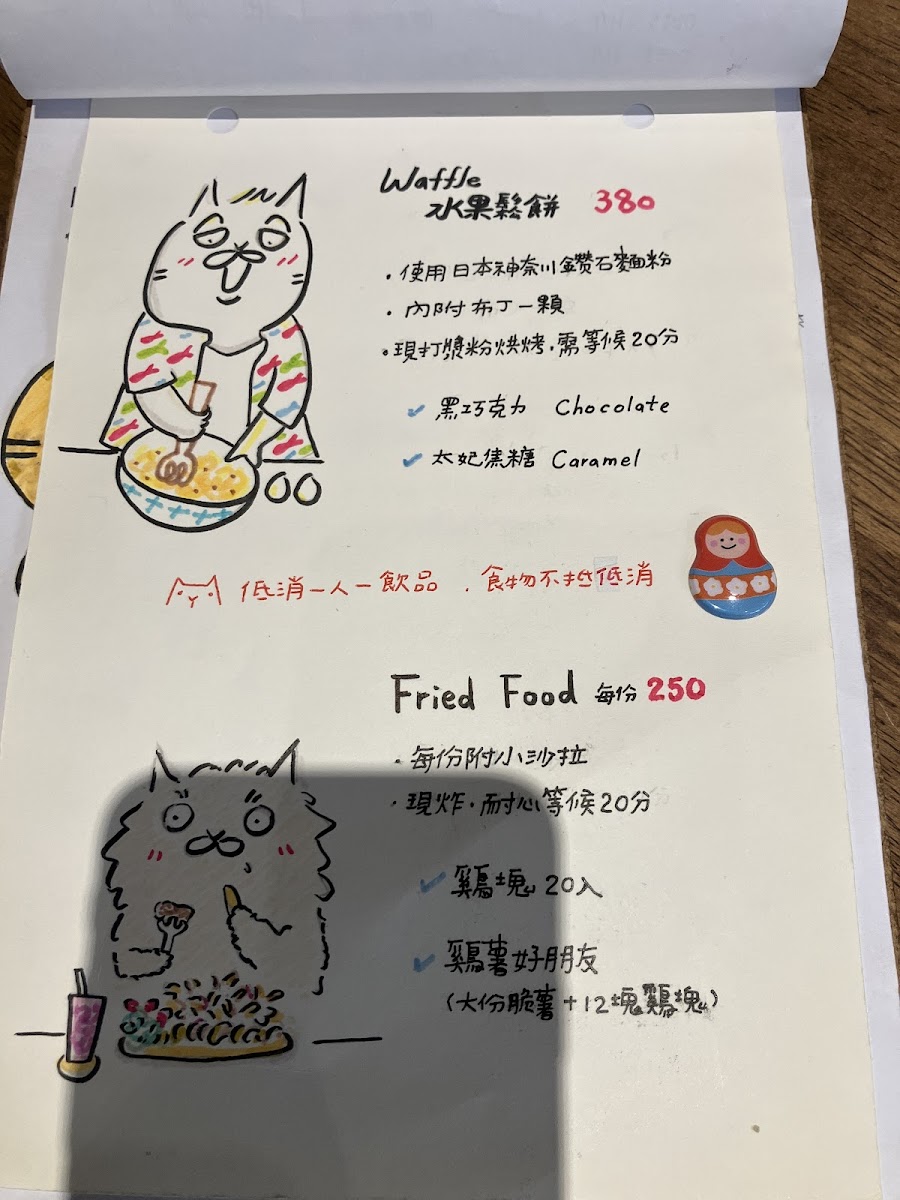 Waffle
水果鬆餅 380
・使用日本神奈川鑽石麵粉
・內附布丁一顆
・現打漿粉烘烤.需等候20分
✓ 黑巧克力 Chocolate
✓ 太妃焦糖 Caramel
低消一人一飲品 . 食物不抵低消
Fried Food 每份 250
・每份附小沙拉
・現炸・耐心等候20分
✓ 雞塊 20入
✓ 雞薯好朋友
(大份脆薯+12塊雞塊)